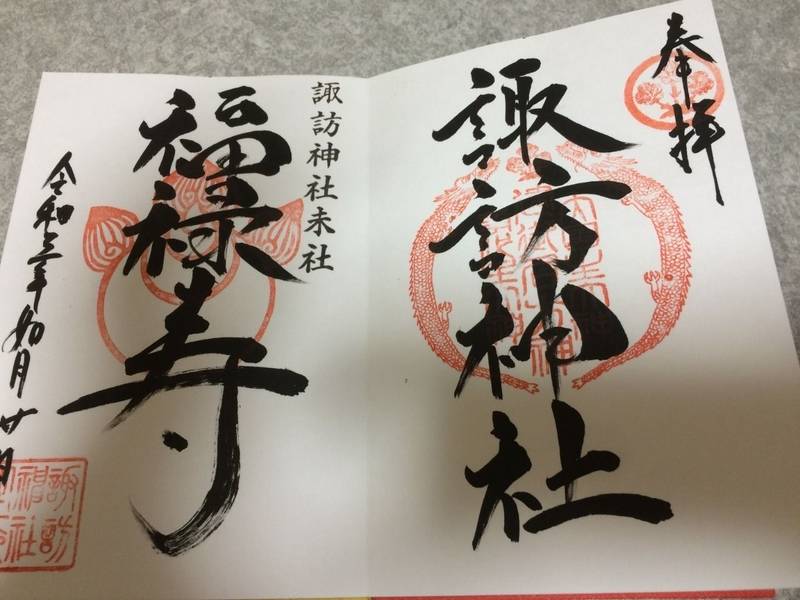 奉拝
諏訪神社
諏訪神社末社
福禄寿
令和三年如月廿